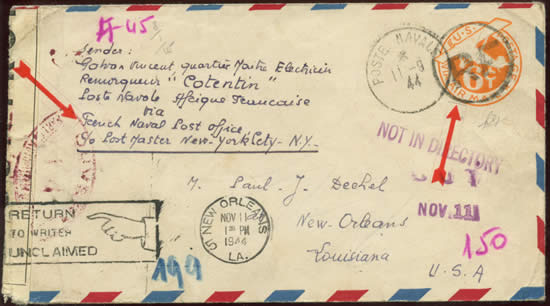 A-45
Sender:
Galvan Vincent quartier Maître Electricien
Remorqueur "Cotentin"
Poste Navale Afrique Francaise
Via
French Naval Post Office
c/o Post Master New-York City - N.Y.
POSTE NAVALE
11-8
44
U.S.
AIR MAIL
6
NOT IN DIRECTORY
NOV 11
M. Paul J. Dechel
New-Orleans
Louisiana
U.S.A
150
199
NEW ORLEANS
NOV 11
1 PM
1944
LA.
RETURN
TO WRITER
UNCLAIMED